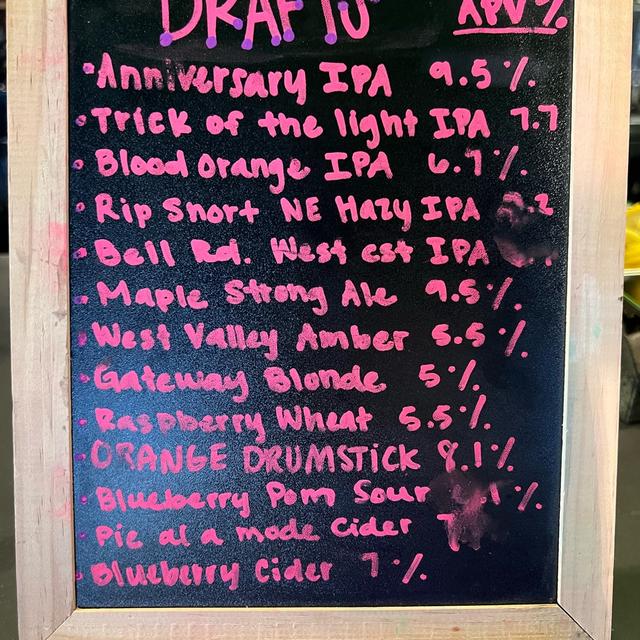 DRAFTS ABV %
Anniversary IPA 9.5 %
Trick of the light IPA 7.7
Blood Orange IPA 6.7 %
Rip Snort NE Hazy IPA
Bell Rd. West cst IPA
Maple Strong Ale 9.5 %
West Valley Amber 5.5 %
Gateway Blonde 5 %
Raspberry Wheat 5.5 %
ORANGE DRUMSTICK 8.1 %
Blueberry Pom Sour %
Pie al a mode Cider
Blueberry Cider 7 %